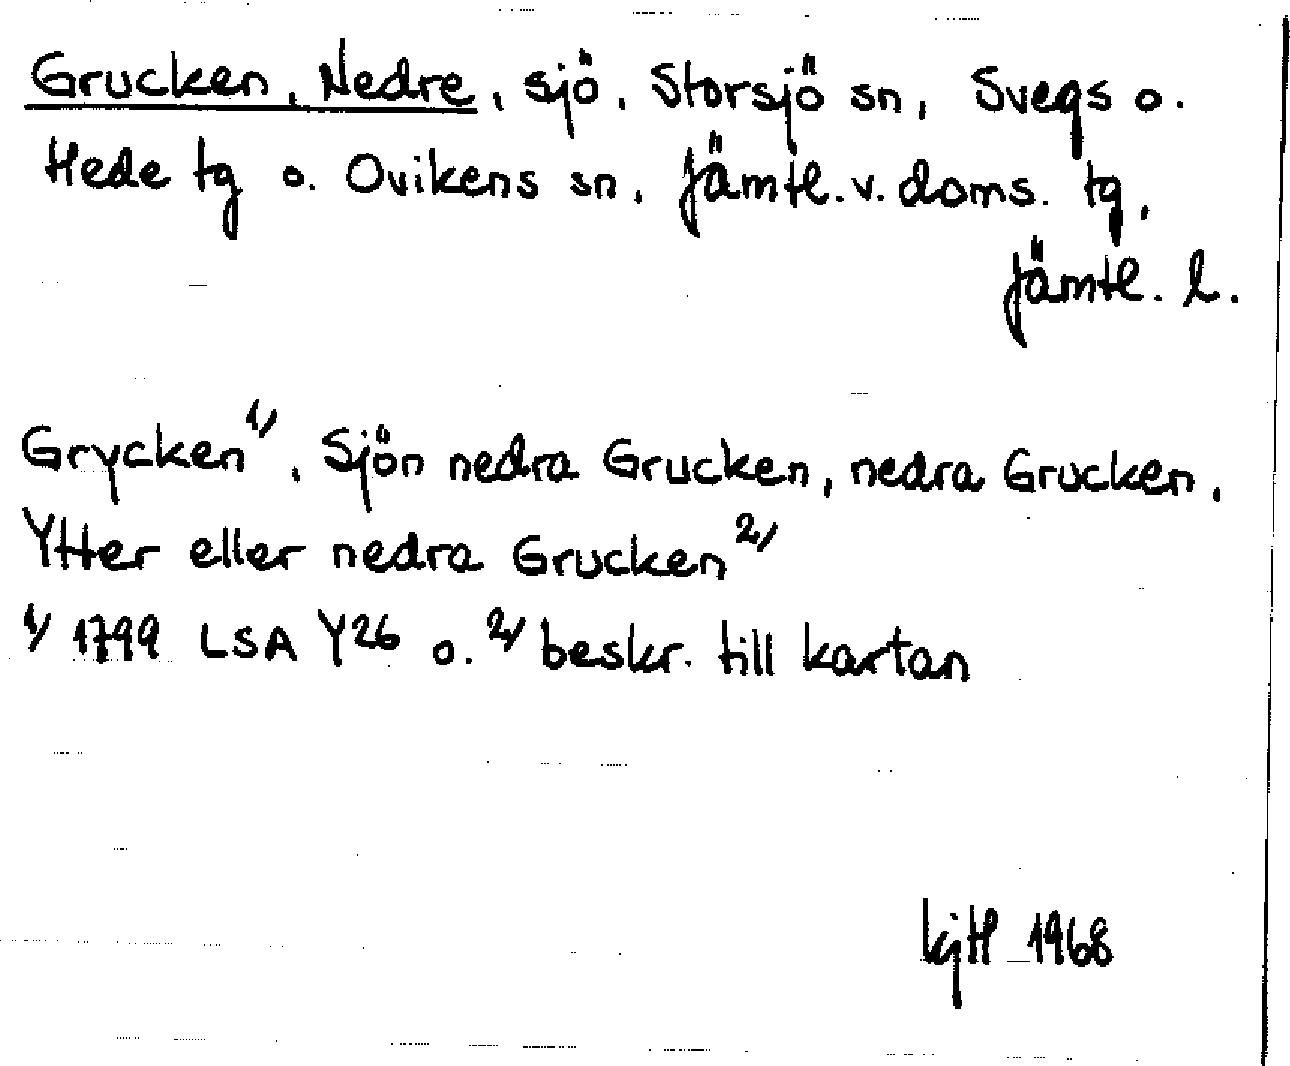 Grucken, Nedre, sjö, Storsjö sn, Svegs o.
Hede tg o. Ovikens sn, Jämtl. v. doms. tg,
Jämtl. l.
Grycken 1/, Sjön nedra Grucken, nedra Grucken,
Ytter eller nedra Grucken 2/
1/ 1799 LSA Y26 o. 2/ beskr. till kartan
kjH 1968